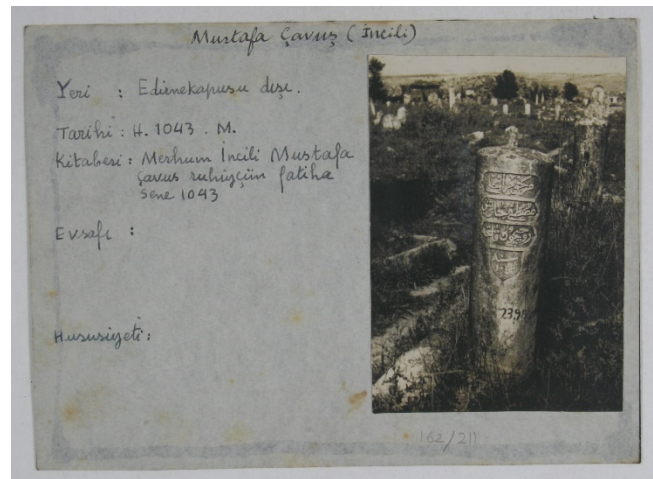 Mustafa Çavuş (İncili)
Yeri : Edirnekapusu dışı.
Tarihi : H. 1043 . M.
Kitabesi : Merhum İncili Mustafa
Çavuş ruhiyçün fatiha
sene 1043
Evsafı :
Hususiyeti :
162/211